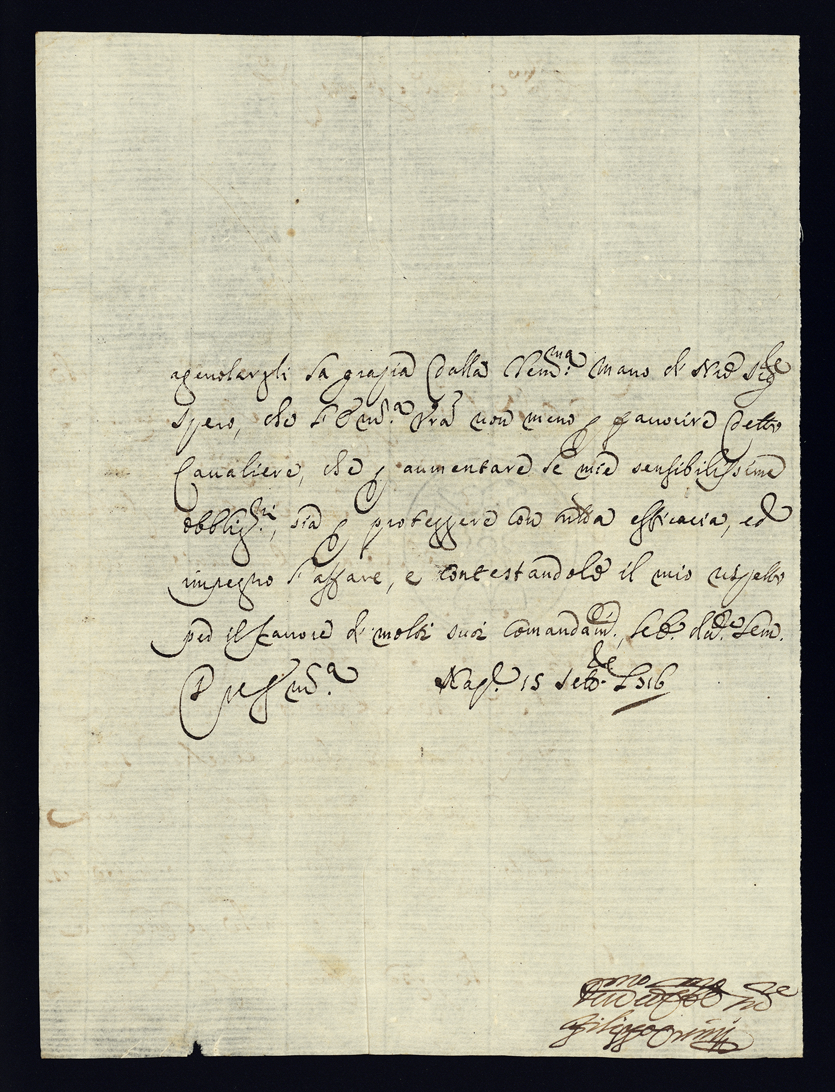 agevolargli la grazia dalla Clem.ma mano di Nro Sig.re
spero, che l'Em.a Vra non meno p favorire detto
Cavaliere, che p aumentare le mie sensibilissime
obblig.ni, sia p proteggere con tutta efficacia, ed
impegno l'affare, e contestandole il mio rispetto
per il favore di molti suoi comandam.ti,
Nap. 15 Sett.bre 1716
Filippo Orsini